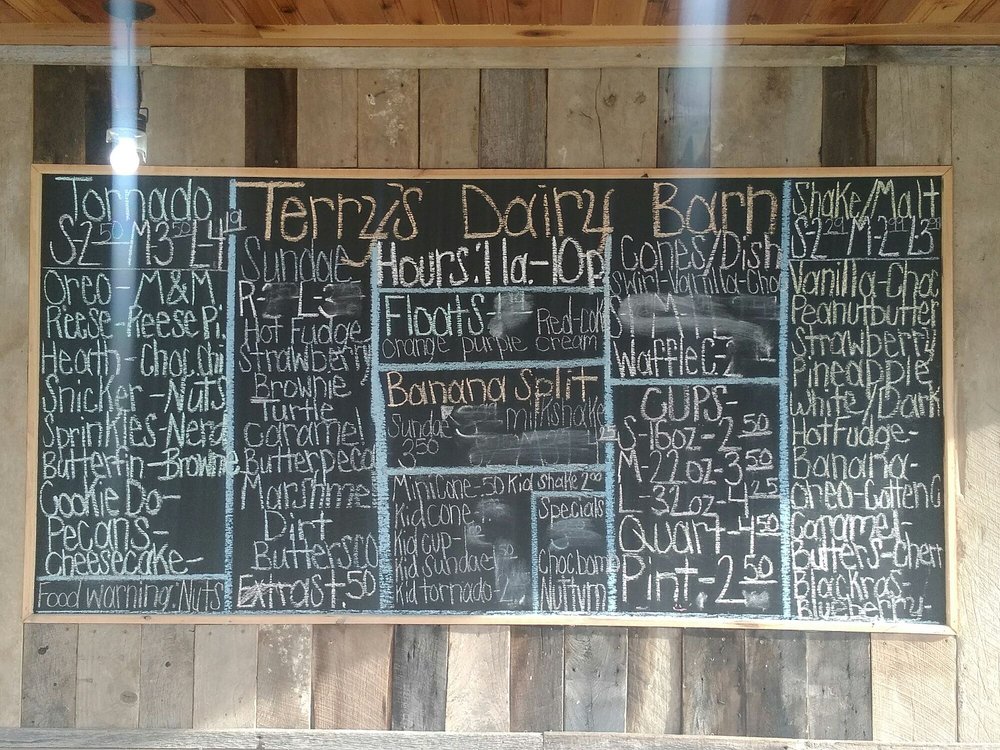 Tornado
S-2.50 M3.50 L-4
Oreo - M&M
Reese-Reese Pi
Heath-Choc.chi
Snicker-Nuts
Sprinkles-Nerd
Butterfin-Brownie
Cookie Do-
Pecans-
Cheesecake-
Food warning:Nuts
Terry's Dairy Barn
Sundae-
R- L-3
Hot Fudge
Strawberry
Brownie
Turtle
Caramel
Butterpeca
Marshmel
Dirt
Buttersco
Extras+.50
Hours:11a.-10p
Floats- Red-
orange purple cream
Banana Split
Sundae milkshake
3.50
MiniCone-50 Kid shake 2.00
Kid cone
Kid cup-
Kid sundae
Kid tornado-2
Specials
Choc.bomb
Cones/Dish
Swirl-Vanilla-Cho
Waffle C-2
CUPS-
S-16oz-2.50
M-22oz-3.50
L-32oz-4.25
Quart-4.50
Pint-2.50
Shake/Malt
Vanilla-Choc
Peanutbutter
Strawberry
Pineapple
White/Dark
HotFudge-
Banana-
Oreo-Cotten C
Caramel-
Butters-Cherr
Blackras-
Blueberry-